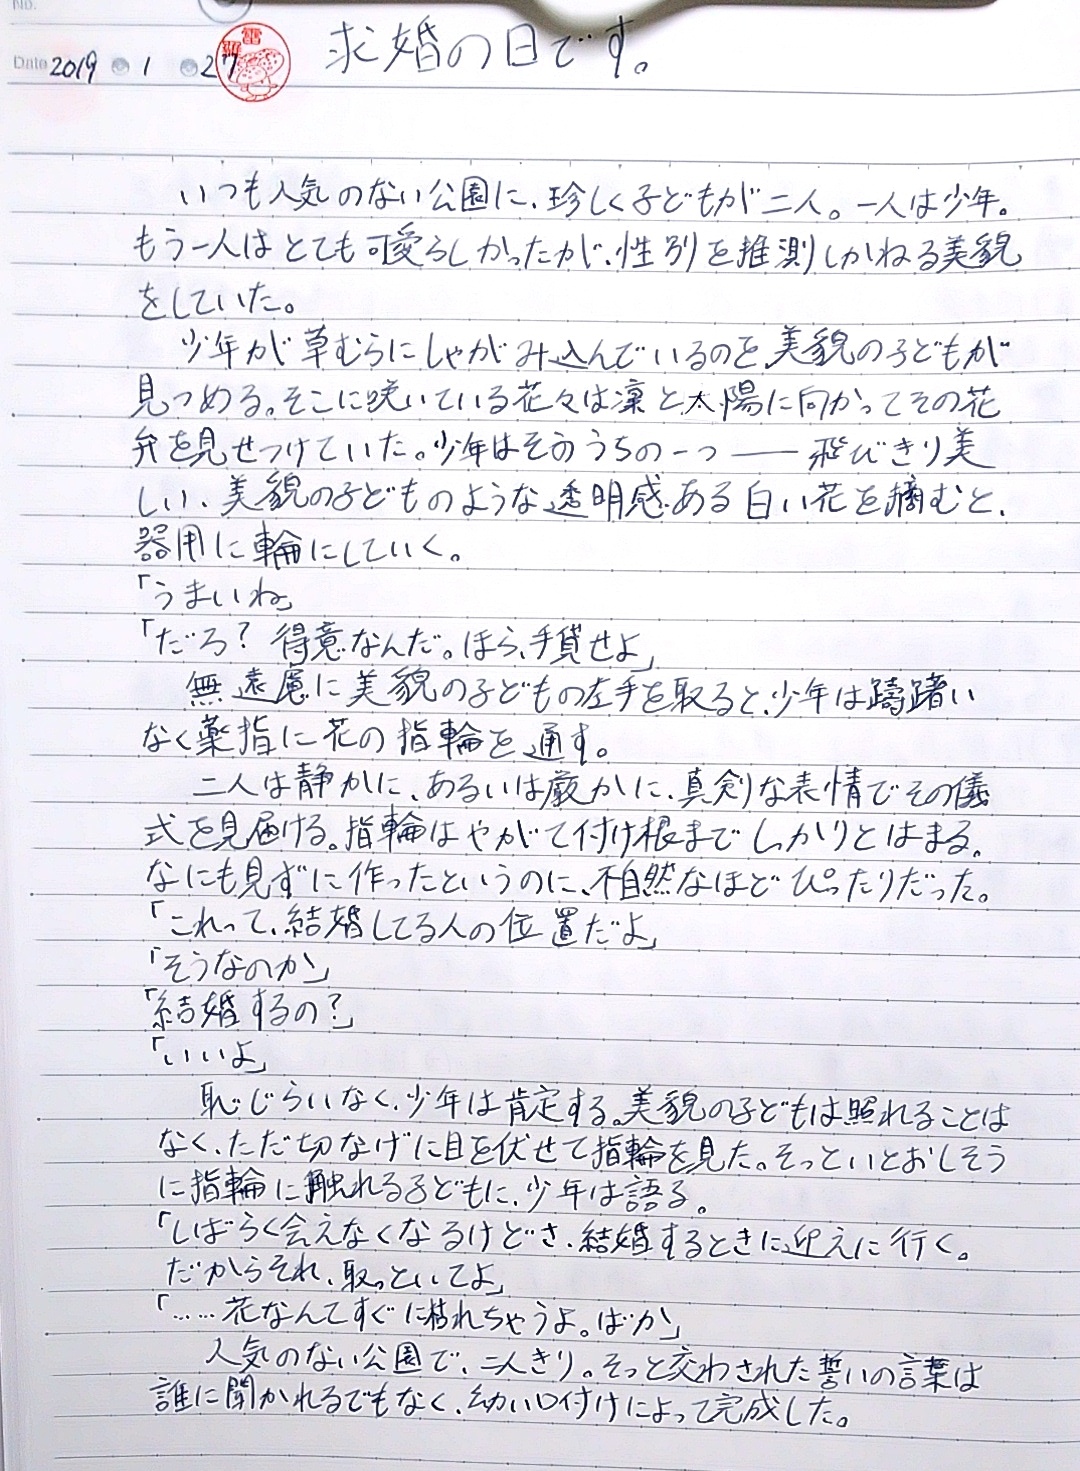 No.
Date 2019 1 27
求婚の日です。
いつも人気のない公園に、珍しく子どもが二人。一人は少年。
もう一人はとても可愛らしかったが、性別を推測しかねる美貌
をしていた。
少年が草むらにしゃがみ込んでいるのを、美貌の子どもが
見つめる。そこに咲いている花々は凜と太陽に向かってその花
弁を見せつけていた。少年はそのうちの一つ――飛びきり美
しい、美貌の子どものような透明感ある白い花を摘むと、
器用に輪にしていく。
「うまいね」
「だろ?得意なんだ。ほら、手貸せよ」
無遠慮に美貌の子どもの左手を取ると、少年は躊躇い
なく薬指に花の指輪を通す。
二人は静かに、あるいは厳かに、真剣な表情でその儀
式を見届ける。指輪はやがて付け根までしっかりとはまる。
なにも見ずに作ったというのに、不自然なほどぴったりだった。
「これって、結婚してる人の位置だよ」
「そうなのか」
「結婚するの?」
「いいよ」
恥じらいなく、少年は肯定する。美貌の子どもは照れることは
なく、ただ切なげに目を伏せて指輪を見た。そっといとおしそう
に指輪に触れる子どもに、少年は語る。
「しばらく会えなくなるけどさ、結婚するときに迎えに行く。
だからそれ、取っといてよ」
「……花なんてすぐに枯れちゃうよ。ばか」
人気のない公園で、二人きり。そっと交わされた誓いの言葉は
誰に聞かれるでもなく、幼い口付けによって完成した。